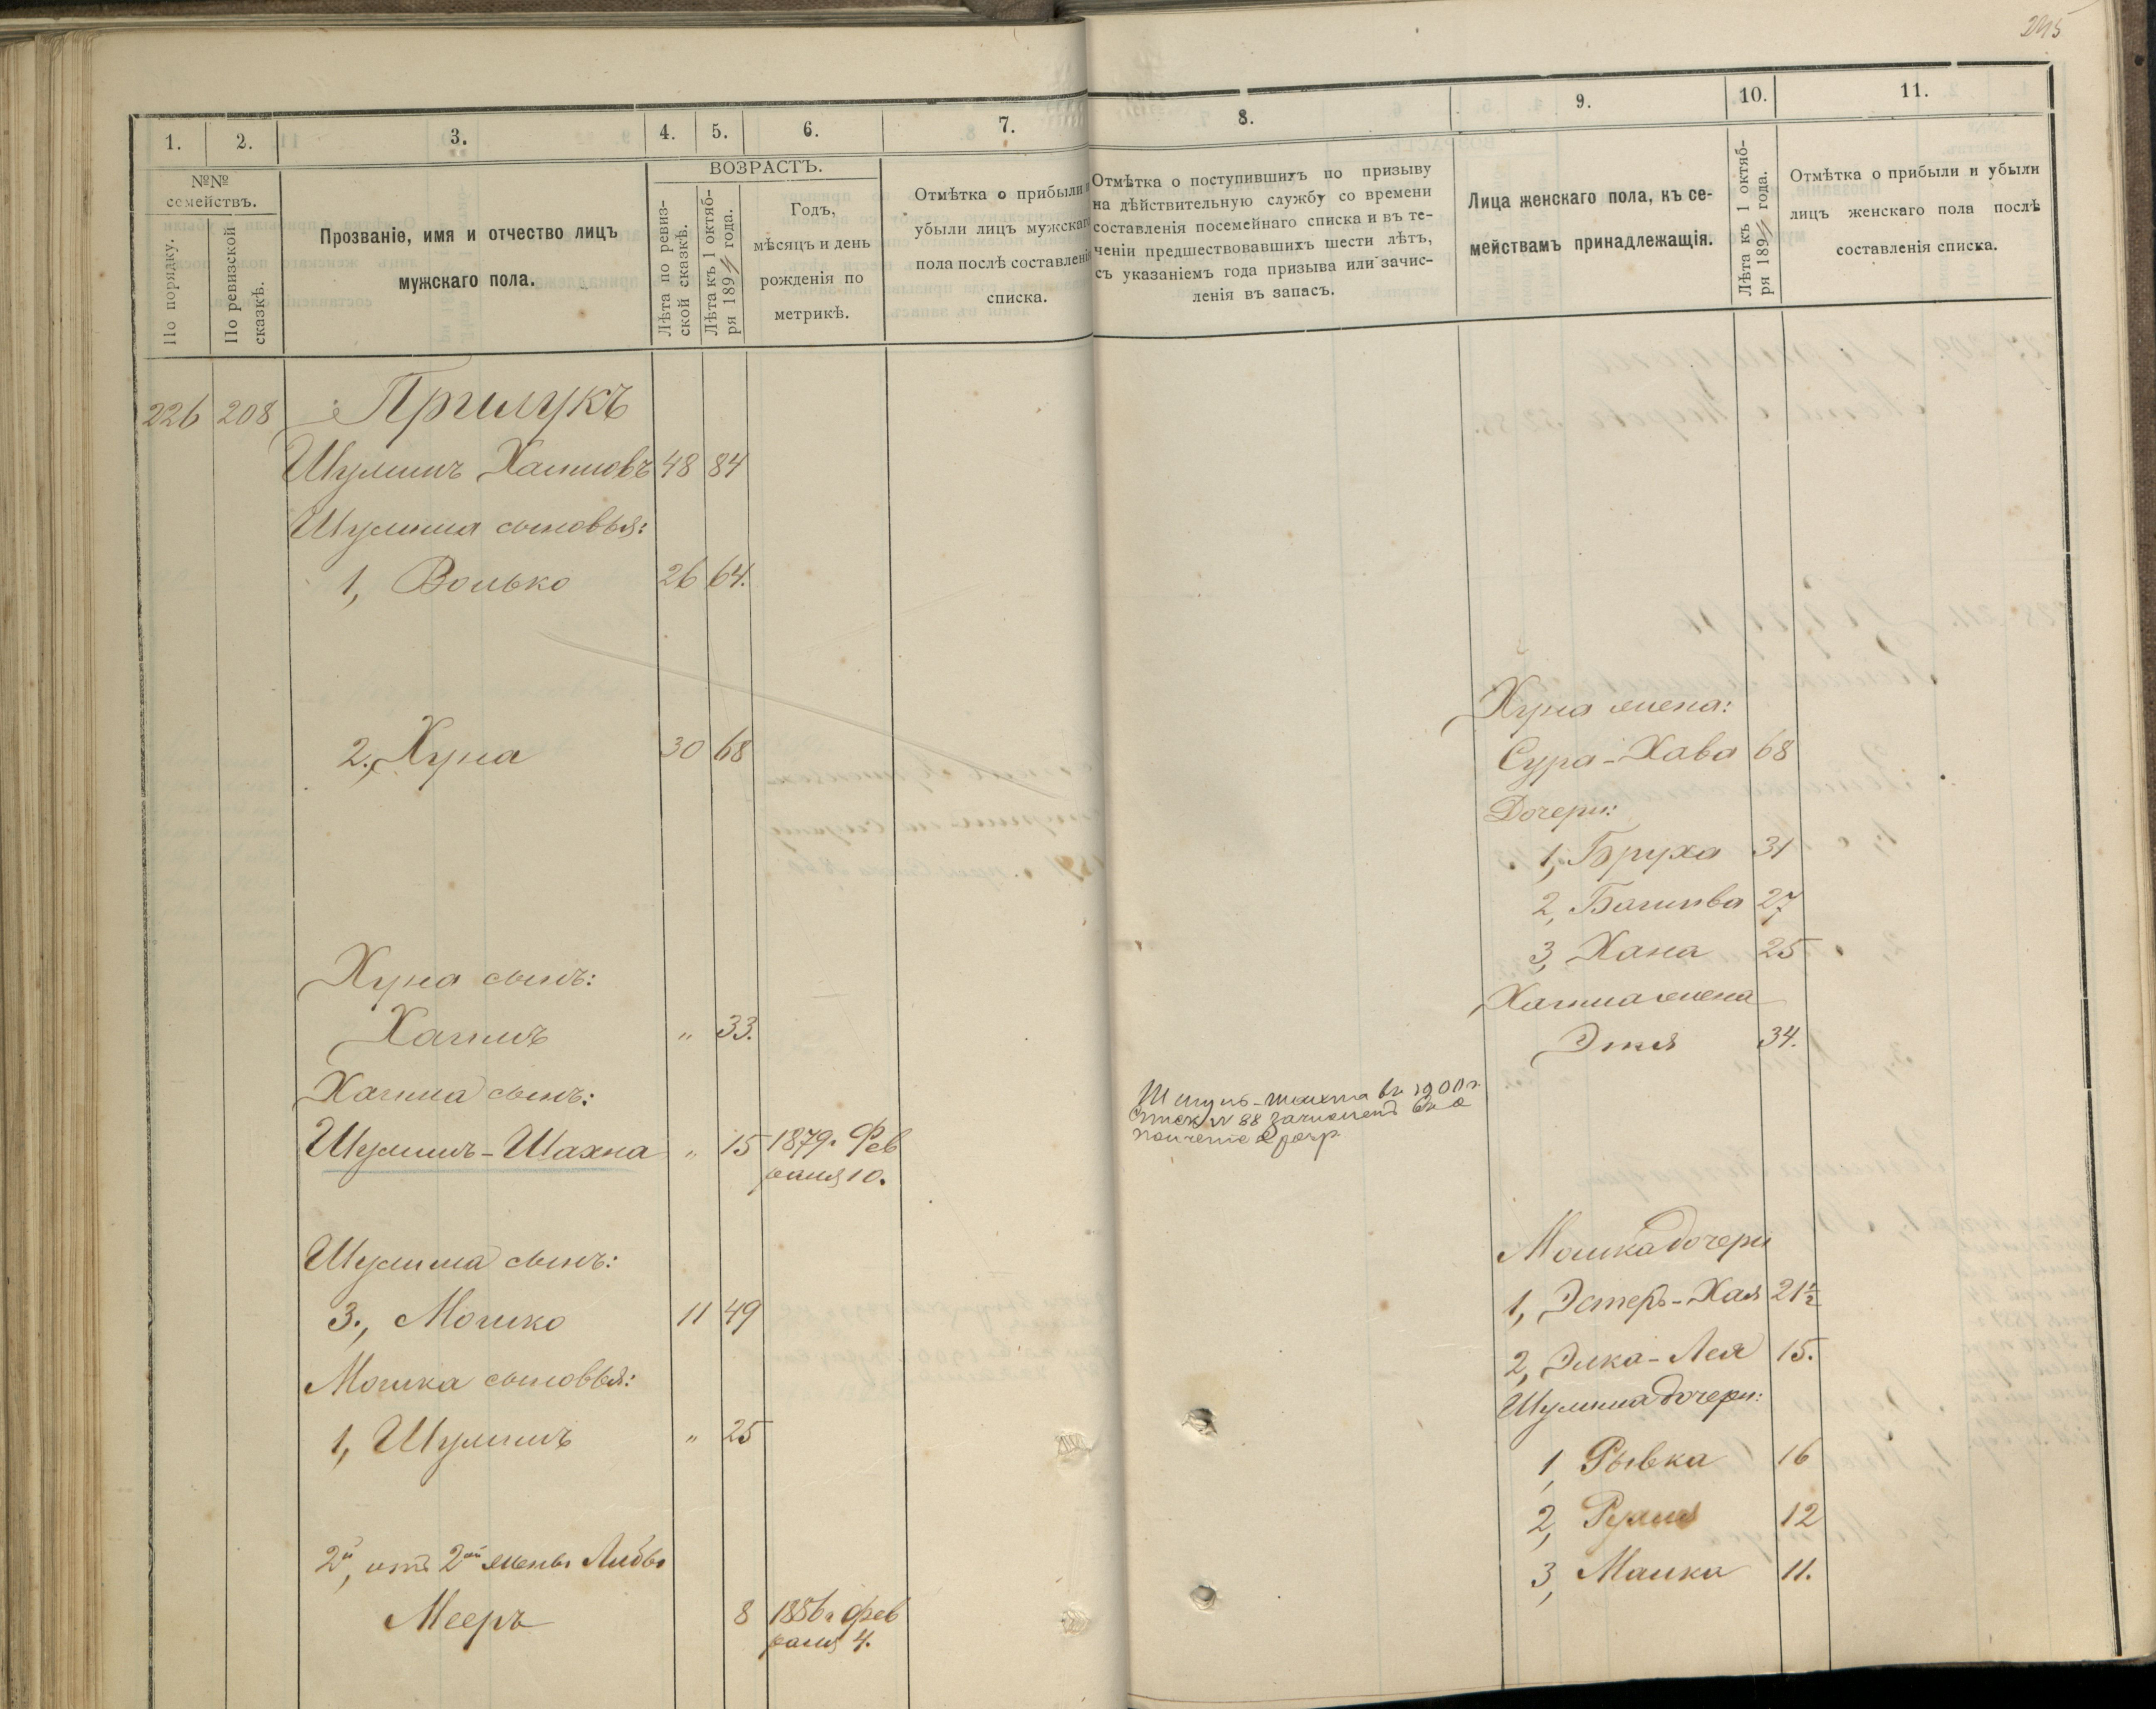 295
1.
2.
3.
4.
5.
6.
7.
8.
9.
10.
11.
№№
семействъ.
По порядку.
По ревизской
сказкѣ.
Прозваніе, имя и отчество лицъ
мужскаго пола.
ВОЗРАСТЪ.
Лѣта по ревиз-
ской сказкѣ.
Лѣта къ 1 октяб-
ря 1894 года.
Годъ,
мѣсяцъ и день
рожденія по
метрикѣ.
Отмѣтка о прибыли и
убыли лицъ мужскаго
пола послѣ составленія
списка.
Отмѣтка о поступившихъ по призыву
на дѣйствительную службу со времени
составленія посемейнаго списка и въ те-
ченіи предшествовавшихъ шести лѣтъ,
съ указаніемъ года призыва или зачис-
ленія въ запасъ.
Лица женскаго пола, къ се-
мействамъ принадлежащія.
Лѣта къ 1 октяб-
ря 1894 года.
Отмѣтка о прибыли и убыли
лицъ женскаго пола послѣ
составленія списка.
226 208 Прилукъ
Шулимъ Хаимовъ 48 84
Шулима сыновья:
1, Волько 26 64.
Хуна жена:
2. Хуна 30 68
Сура-Хава 68
Дочери:
1, Бруха 31
2, Башива 27
3, Хана 25
Хуна сынъ:
Хаима жена
Хаимъ " 33.
Этя 34.
Хаима сынъ:
Шулимъ-Шахна " 15 1879 г. Фев
раля 10.
Шмуль-Шахна въ 1900 г.
№ 88 зачисленъ въ
Шулима сынъ:
Мошка дочери
3., Мошко 11 49
1, Эстеръ-Хая 21½
Мошка сыновья:
2, Элка-Лея 15.
Шулима дочери:
1, Шулимъ " 25
1, Рывка 16
2, 12
2й, отъ 2ой жены Либы
3, Малка 11.
Мееръ 8 1886 г. Фев
раля 4.